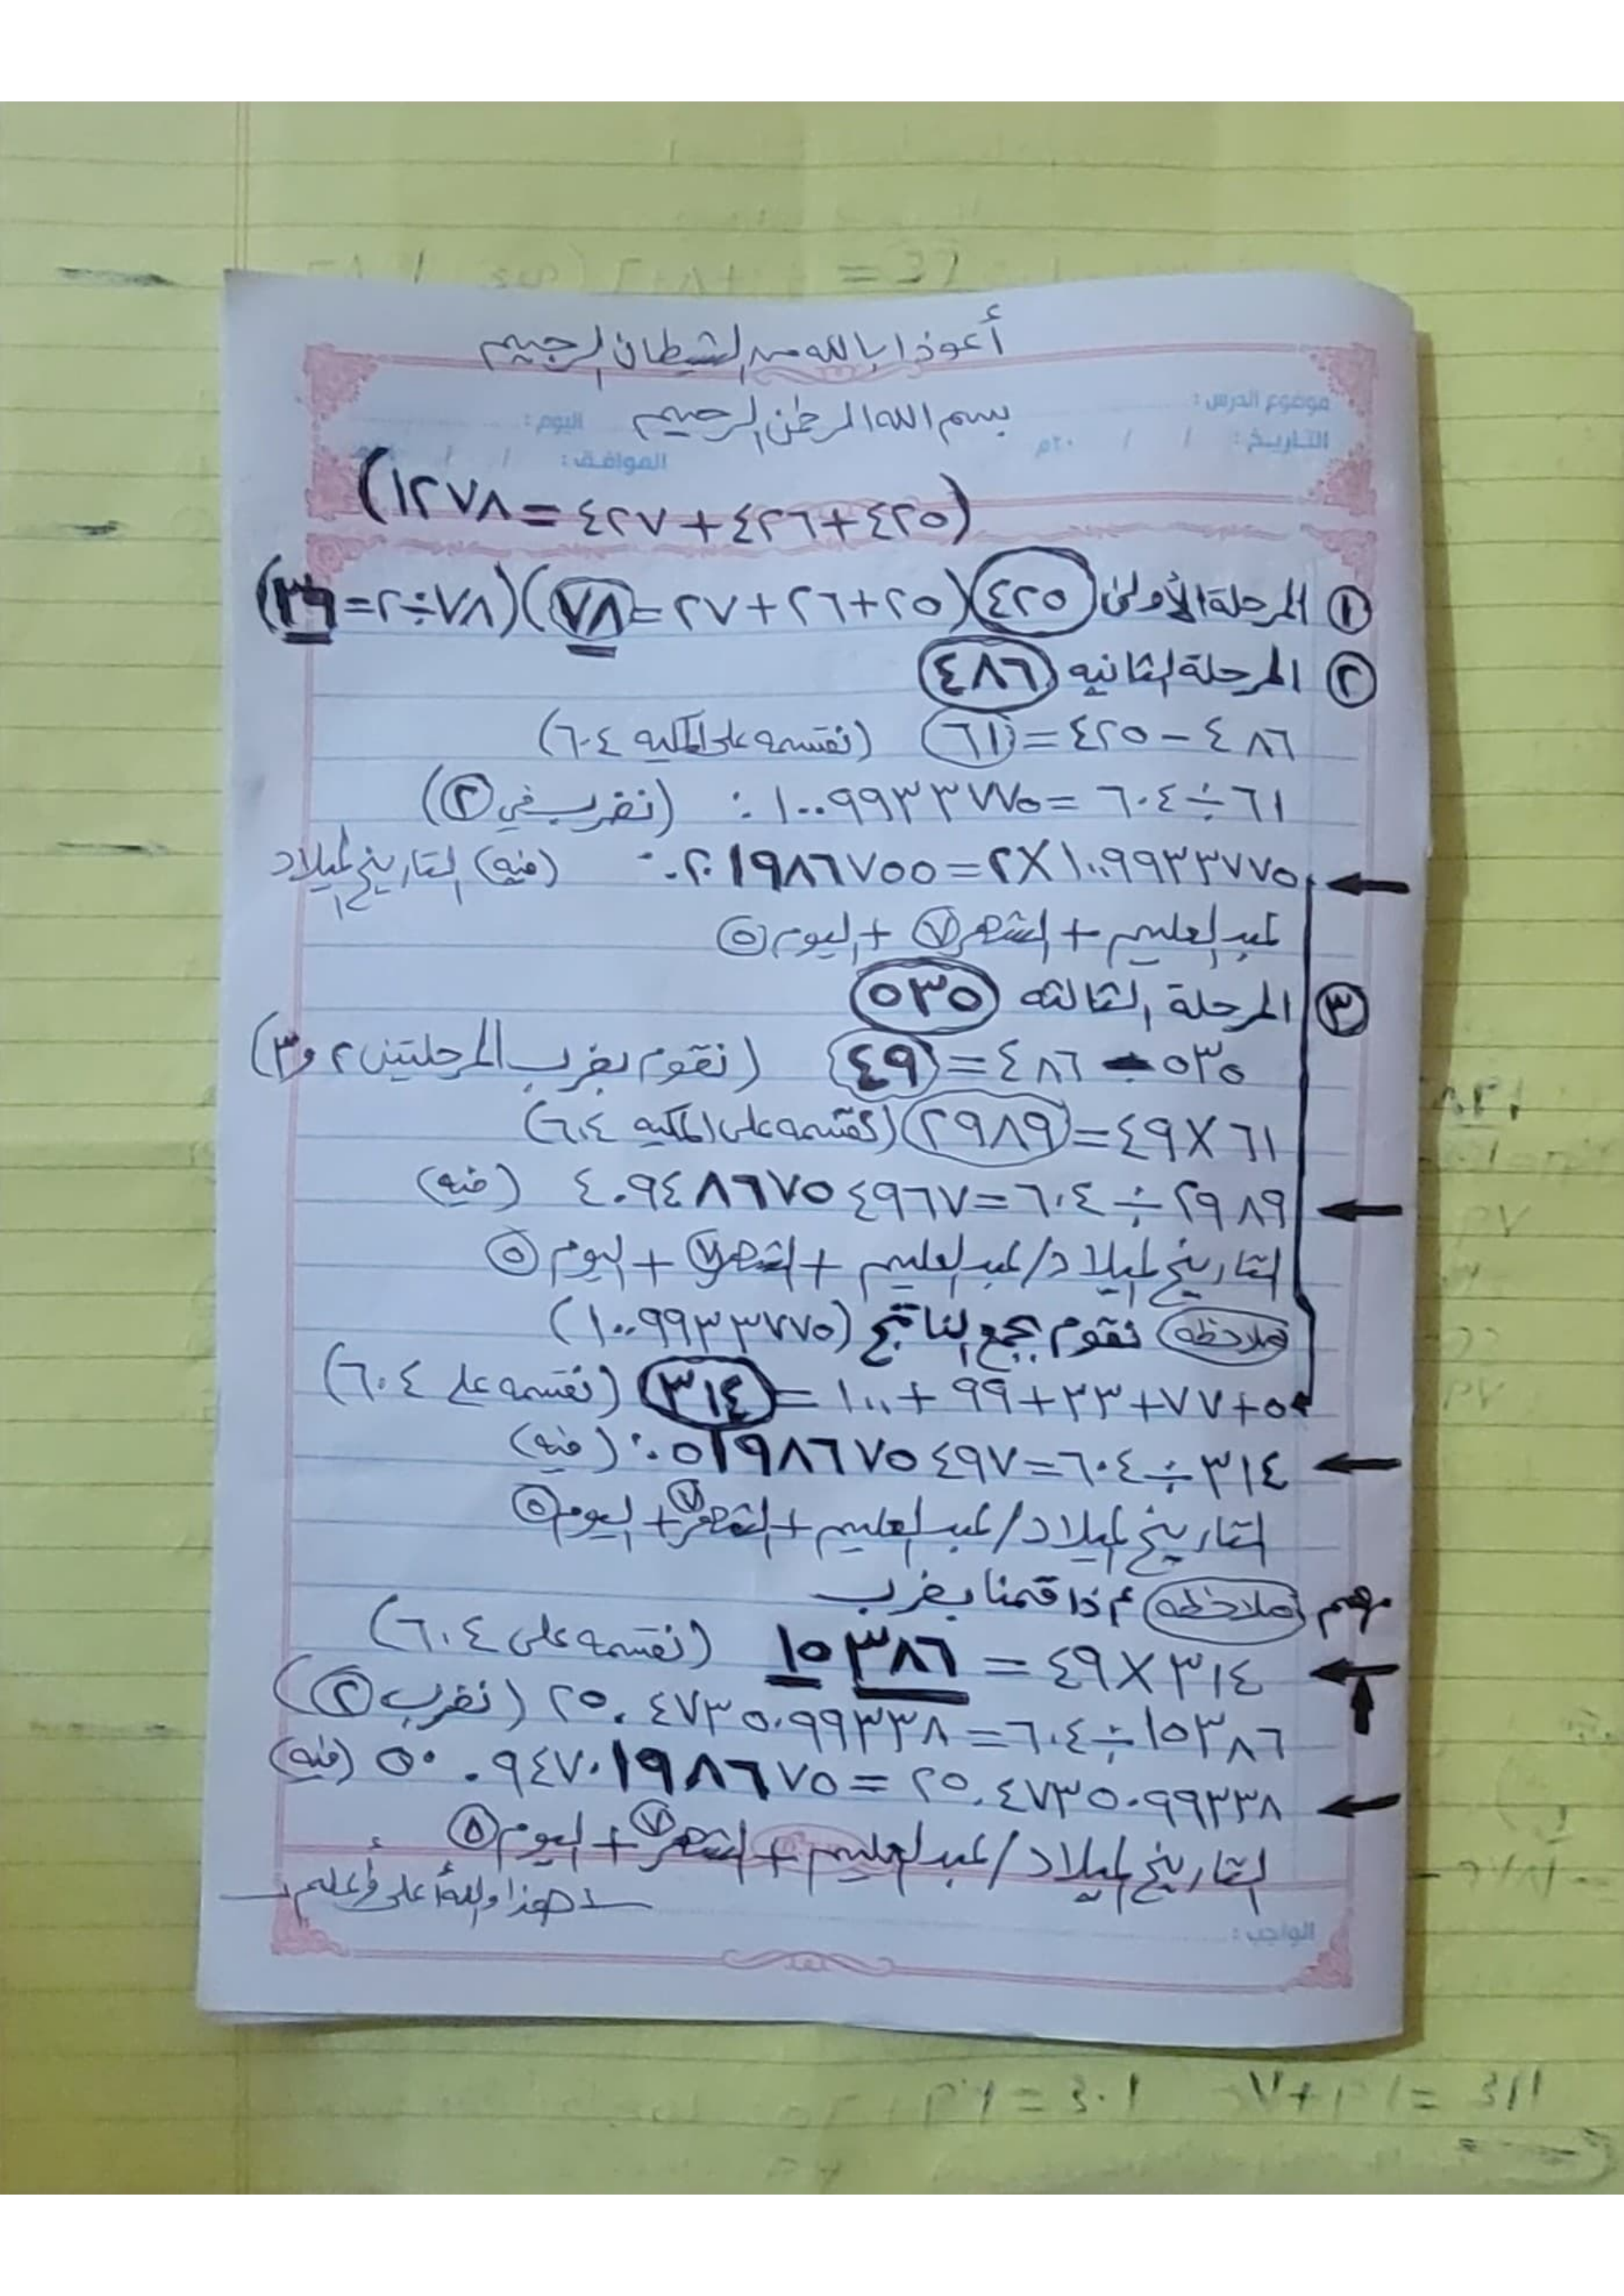 أعوذ بالله من الشيطان الرجيم
موضوع الدرس :
بسم الله الرحمن الرحيم
اليوم :
التاريخ : / / ٢٠م
الموافق : / /
(٤٢٥+٤٢٦+٤٢٧=١٢٧٨)
① المرحلة الأولى (٤٢٥) (٢٥+٢٦+٢٧=٧٨) (٧٨÷٢=٣٩)
② المرحلة الثانيه (٤٨٦)
٤٨٦ - ٤٢٥ = (٦١) (نقسمه على المكيه ٦٠٤)
٦١÷٦٠٤ = ٠.١٠٠٩٩٣٣٧٧٥ (نضرب في ②)
١٠٠٩٩٣٣٧٧٥×٢ = ٠.٢٠١٩٨٦٧٥٥٠ (فيه) التاريخ لميلاد
لعبد العليم + الشهر ⑦ + اليوم ⑤
③ المرحلة الثالثه (٥٣٥)
٥٣٥ - ٤٨٦ = (٤٩) (نقوم بضرب المرحلتين ٢ و ٣)
٦١×٤٩ = (٢٩٨٩) (نقسمه على المكيه ٦٠٤)
٢٩٨٩ ÷ ٦٠٤ = ٤.٩٤٨٦٧٥٤٩٦٧ (فيه)
التاريخ لميلاد / لعبد العليم + الشهر ⑦ + اليوم ⑤
(ملاحظه) نقوم بجمع الناتج (١٠٠٩٩٣٣٧٧٥)
٥+٧٧+٣٣+٩٩+١٠٠ = (٣١٤) (نقسمه على ٦٠٤)
٣١٤ ÷ ٦٠٤ = ٠.٥١٩٨٦٧٥٤٩٧ (فيه)
التاريخ لميلاد / لعبد العليم + الشهر ⑦ + اليوم ⑤
مهم (ملاحظه) إذا قمنا بضرب
٣١٤×٤٩ = ١٥٣٨٦ (نقسمه على ٦٠٤)
١٥٣٨٦ ÷ ٦٠٤ = ٢٥.٤٧٣٥٠٩٩٣٣٨ (نضرب ②)
٢٥.٤٧٣٥٠٩٩٣٣٨ = ٥٠.٩٤٧٠١٩٨٦٧٥ (فيه)
التاريخ لميلاد / لعبد العليم + الشهر ⑦ + اليوم ⑤
هذا والله أعلى وأعلم
الواجب :